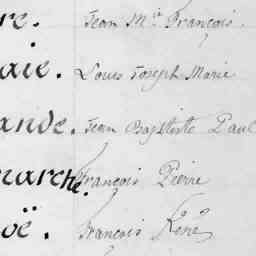 re. Jean M.ie François.
aie. Louis Joseph Marie
ande. Jean Baptiste Paul
marche. François Pierre
oë. François René